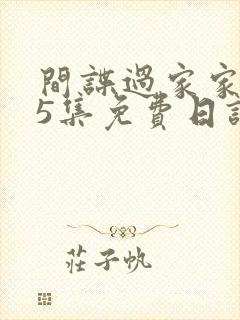 間諜過家家
5集免費日語
莊子帆